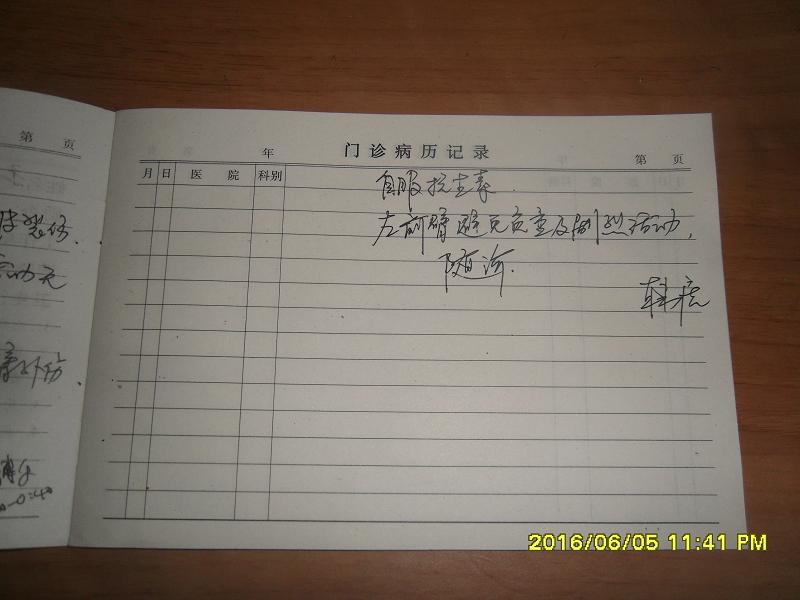 第 页
年 门诊病历记录 第 页
月 日 医 院 科别
自服抗生素.
左前臂避免负重及剧烈活动,
随诊.
外伤
2016/06/05 11:41 PM